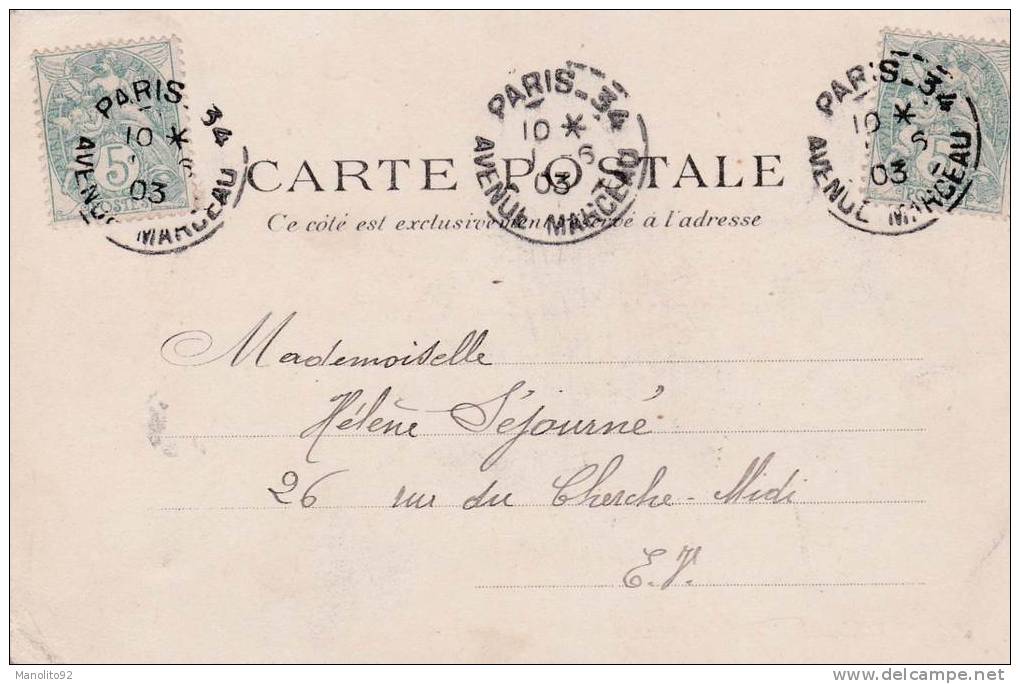 PARIS-34
10 *
6
03
AVENUE MARCEAU
5
POSTES
PARIS-34
10 *
1 6
03
AVENUE MARCEAU
PARIS-34
10 *
6
03
AVENUE MARCEAU
CARTE POSTALE
Ce côté est exclusivement réservé à l'adresse
Mademoiselle
Hélène Séjourné
26 rue du Cherche-Midi
E.V.
Manolito92
www.delcampe.net